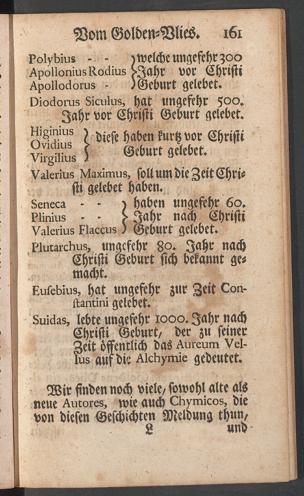 Vom Golden-Vlies. 161
Polybius - - } welche ungefehr 300
Apollonius Rodius } Jahr vor Christi
Apollodorus - } Geburt gelebet.
Diodorus Siculus, hat ungefehr 500.
Jahr vor Christi Geburt gelebet.
Higinius
Ovidius } diese haben kurtz vor Christi
Virgilius } Geburt gelebet.
Valerius Maximus, soll um die Zeit Chri-
sti gelebet haben.
Seneca - - } haben ungefehr 60.
Plinius - - } Jahr nach Christi
Valerius Flaccus } Geburt gelebet.
Plutarchus, ungefehr 80. Jahr nach
Christi Geburt sich bekannt ge-
macht.
Eusebius, hat ungefehr zur Zeit Con-
stantini gelebet.
Suidas, lebte ungefehr 1000. Jahr nach
Christi Geburt, der zu seiner
Zeit öffentlich das Aureum Vel-
lus auf die Alchymie gedeutet.
Wir finden noch viele, sowohl alte als
neue Autores, wie auch Chymicos, die
von diesen Geschichten Meldung thun,
L und